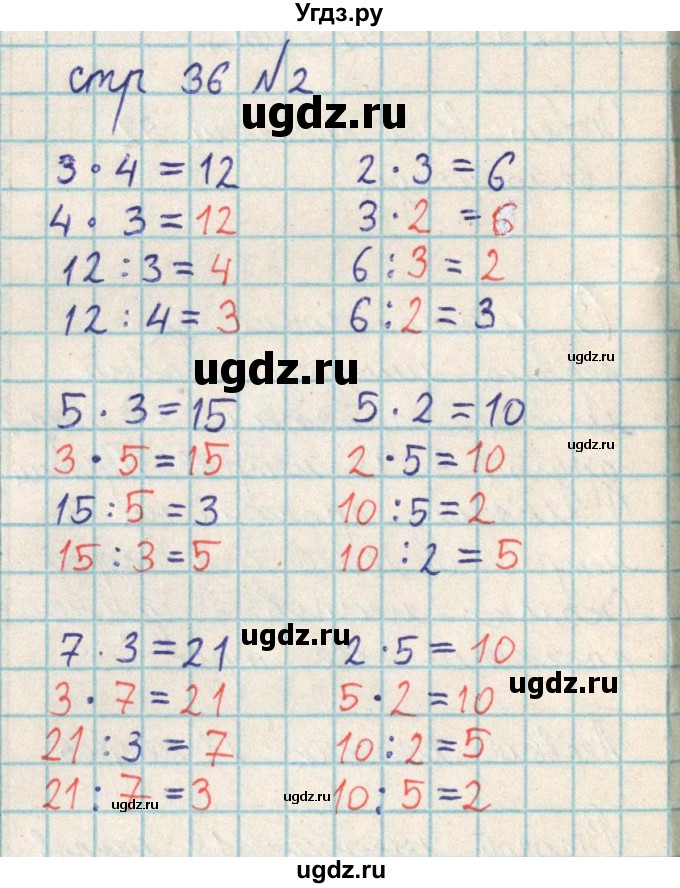 Угдз.ру
стр 36 №2
ugdz.ru
3 · 4 = 12 2 · 3 = 6
4 · 3 = 12 3 · 2 = 6
12 : 3 = 4 6 : 3 = 2
12 : 4 = 3 6 : 2 = 3
ugdz.ru
ugdz.ru
5 · 3 = 15 5 · 2 = 10
ugdz.ru
3 · 5 = 15 2 · 5 = 10
15 : 5 = 3 10 : 5 = 2
15 : 3 = 5 10 : 2 = 5
ugdz.ru
7 · 3 = 21 2 · 5 = 10
ugdz.ru
3 · 7 = 21 5 · 2 = 10
21 : 3 = 7 10 : 2 = 5
21 : 7 = 3 10 : 5 = 2
ugdz.ru
ugdz.ru
ugdz.ru